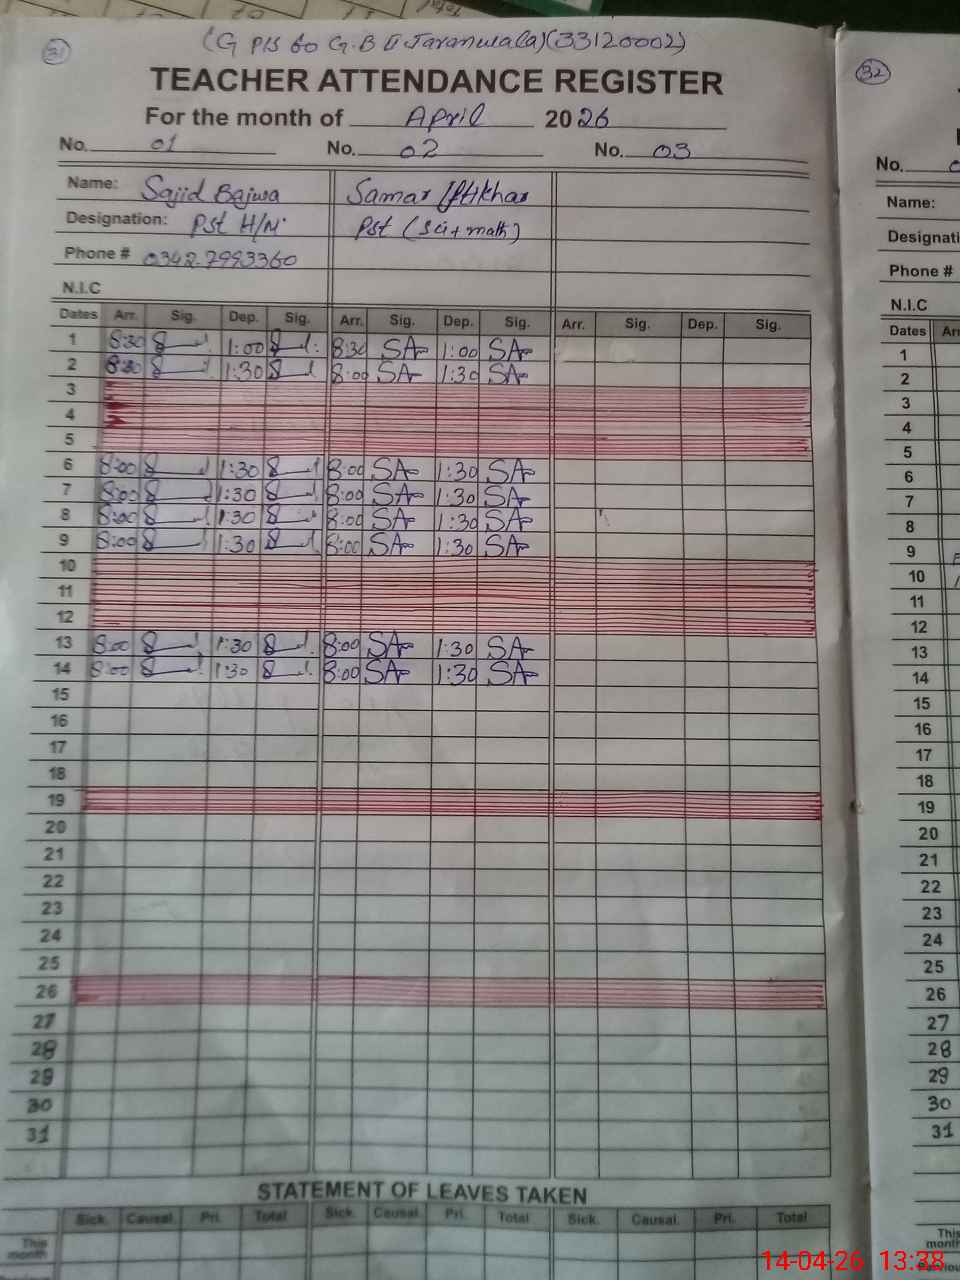 31
(G P/S 60 G.B II Jaranwala)(33120002)
TEACHER ATTENDANCE REGISTER
For the month of April 2026
No. 01 No. 02 No. 03
Name: Sajid Bajwa Samar Iftikhar
Designation: Pst H/M Pst (Sci+math)
Phone # 0342-7993360
N.I.C
Dates Arr. Sig. Dep. Sig. Arr. Sig. Dep. Sig. Arr. Sig. Dep. Sig.
1 8:30 1:00 8:30 SA 1:00 SA
2 8:30 1:30 8:00 SA 1:30 SA
3
4
5
6 8:00 1:30 8:00 SA 1:30 SA
7 8:00 1:30 8:00 SA 1:30 SA
8 8:00 1:30 8:00 SA 1:30 SA
9 8:00 1:30 8:00 SA 1:30 SA
10
11
12
13 8:00 1:30 8:00 SA 1:30 SA
14 8:00 1:30 8:00 SA 1:30 SA
15
16
17
18
19
20
21
22
23
24
25
26
27
28
29
30
31
STATEMENT OF LEAVES TAKEN
Sick. Causal. Pri. Total Sick. Causal. Pri. Total Sick. Causal. Pri. Total
This
month
32
No.
Name:
Designati
Phone #
N.I.C
Dates Arr
1
2
3
4
5
6
7
8
9
10
11
12
13
14
15
16
17
18
19
20
21
22
23
24
25
26
27
28
29
30
31
This
month
14-04-26 13:38